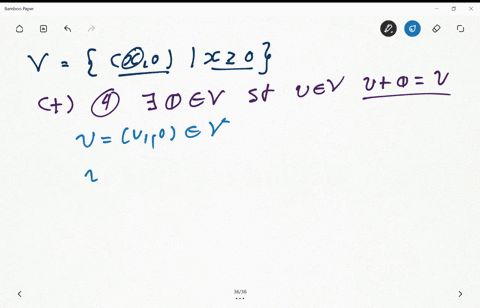 Bamboo Paper
V = { (x, 0) | x ≥ 0 }
(+) ④ ∃ 0 ∈ V st v ∈ V v + 0 = v
v = (v₁, 0) ∈ V
36/36